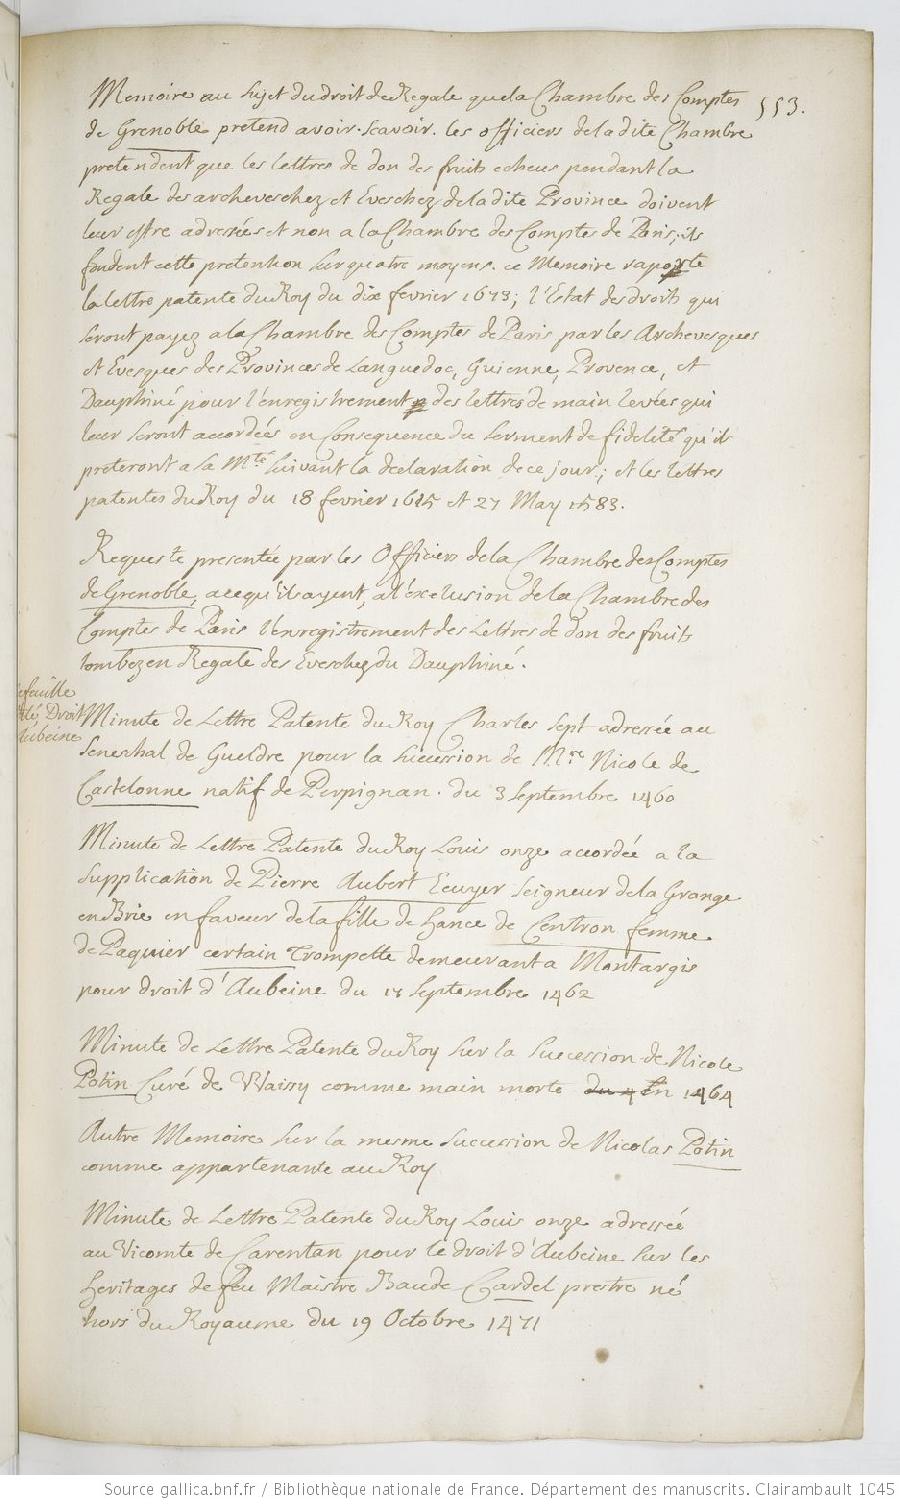 553.
Memoire au sujet du droit de Regale que la Chambre des Comptes
de Grenoble pretend avoir. scavoir. les officiers de la dite Chambre
pretendent que les lettres de don des fruits echeus pendant la
Regale des archeveschez et Eveschez de la dite Province doivent
leur estre adressées et non a la Chambre des Comptes de Paris, ils
fondent cette pretention sur quatre moyens. ce Memoire raporte
la lettre patente du Roy du dix fevrier 1673; l'Estat des droits qui
seront payez a la Chambre des Comptes de Paris par les Archevesques
et Evesques des Provinces de Languedoc, Guienne, Provence, et
Dauphiné pour l'enregistrement des lettres de main levées qui
leur seront accordées en Consequence du serment de fidelité qu'ils
preteront a sa Mté suivant la declaration de ce jour; et les lettres
patentes du Roy du 18 fevrier 1615 et 27 May 1583.
Requeste presentée par les Officiers de la Chambre des Comptes
de Grenoble, a ce qu'ils ayent, a l'exclusion de la Chambre des
Comptes de Paris l'enregistrement des Lettres de don des fruits
tombez en Regale des Eveschez du Dauphiné.
feuille
Droit
aubeine
Minute de Lettre Patente du Roy Charles sept adressée au
Seneshal de Gueldre pour la sucession de Mre Nicole de
Castelonne natif de Perpignan. du 3 Septembre 1460
Minute de Lettre Patente du Roy Louis onze accordée a la
Supplication de Pierre Aubert Ecuyer Seigneur de la Grange
en Brie en faveur de la fille de Hance de Centron femme
de Paquier certain Trompette demeurant a Montargis
pour droit d'Aubeine du Septembre 1462
Minute de Lettre Patente du Roy sur la Succession de Nicole
Potin Curé de Waissy comme main morte 1464
Autre Memoire sur la mesme sucession de Nicolas Potin
comme appartenante au Roy
Minute de Lettre Patente du Roy Louis onze adressée
au Vicomte de Carentan pour le droit d'Aubeine sur les
heritages de feu Maistre Baude Chardel prestre né
hors du Royaume du 19 Octobre 1471
Source gallica.bnf.fr / Bibliothèque nationale de France. Département des manuscrits. Clairambault 1045